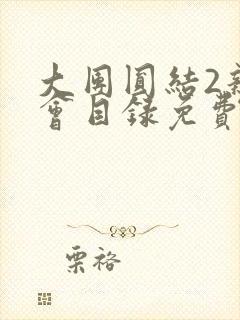 大團圓結2新
會目錄免費
栗裕